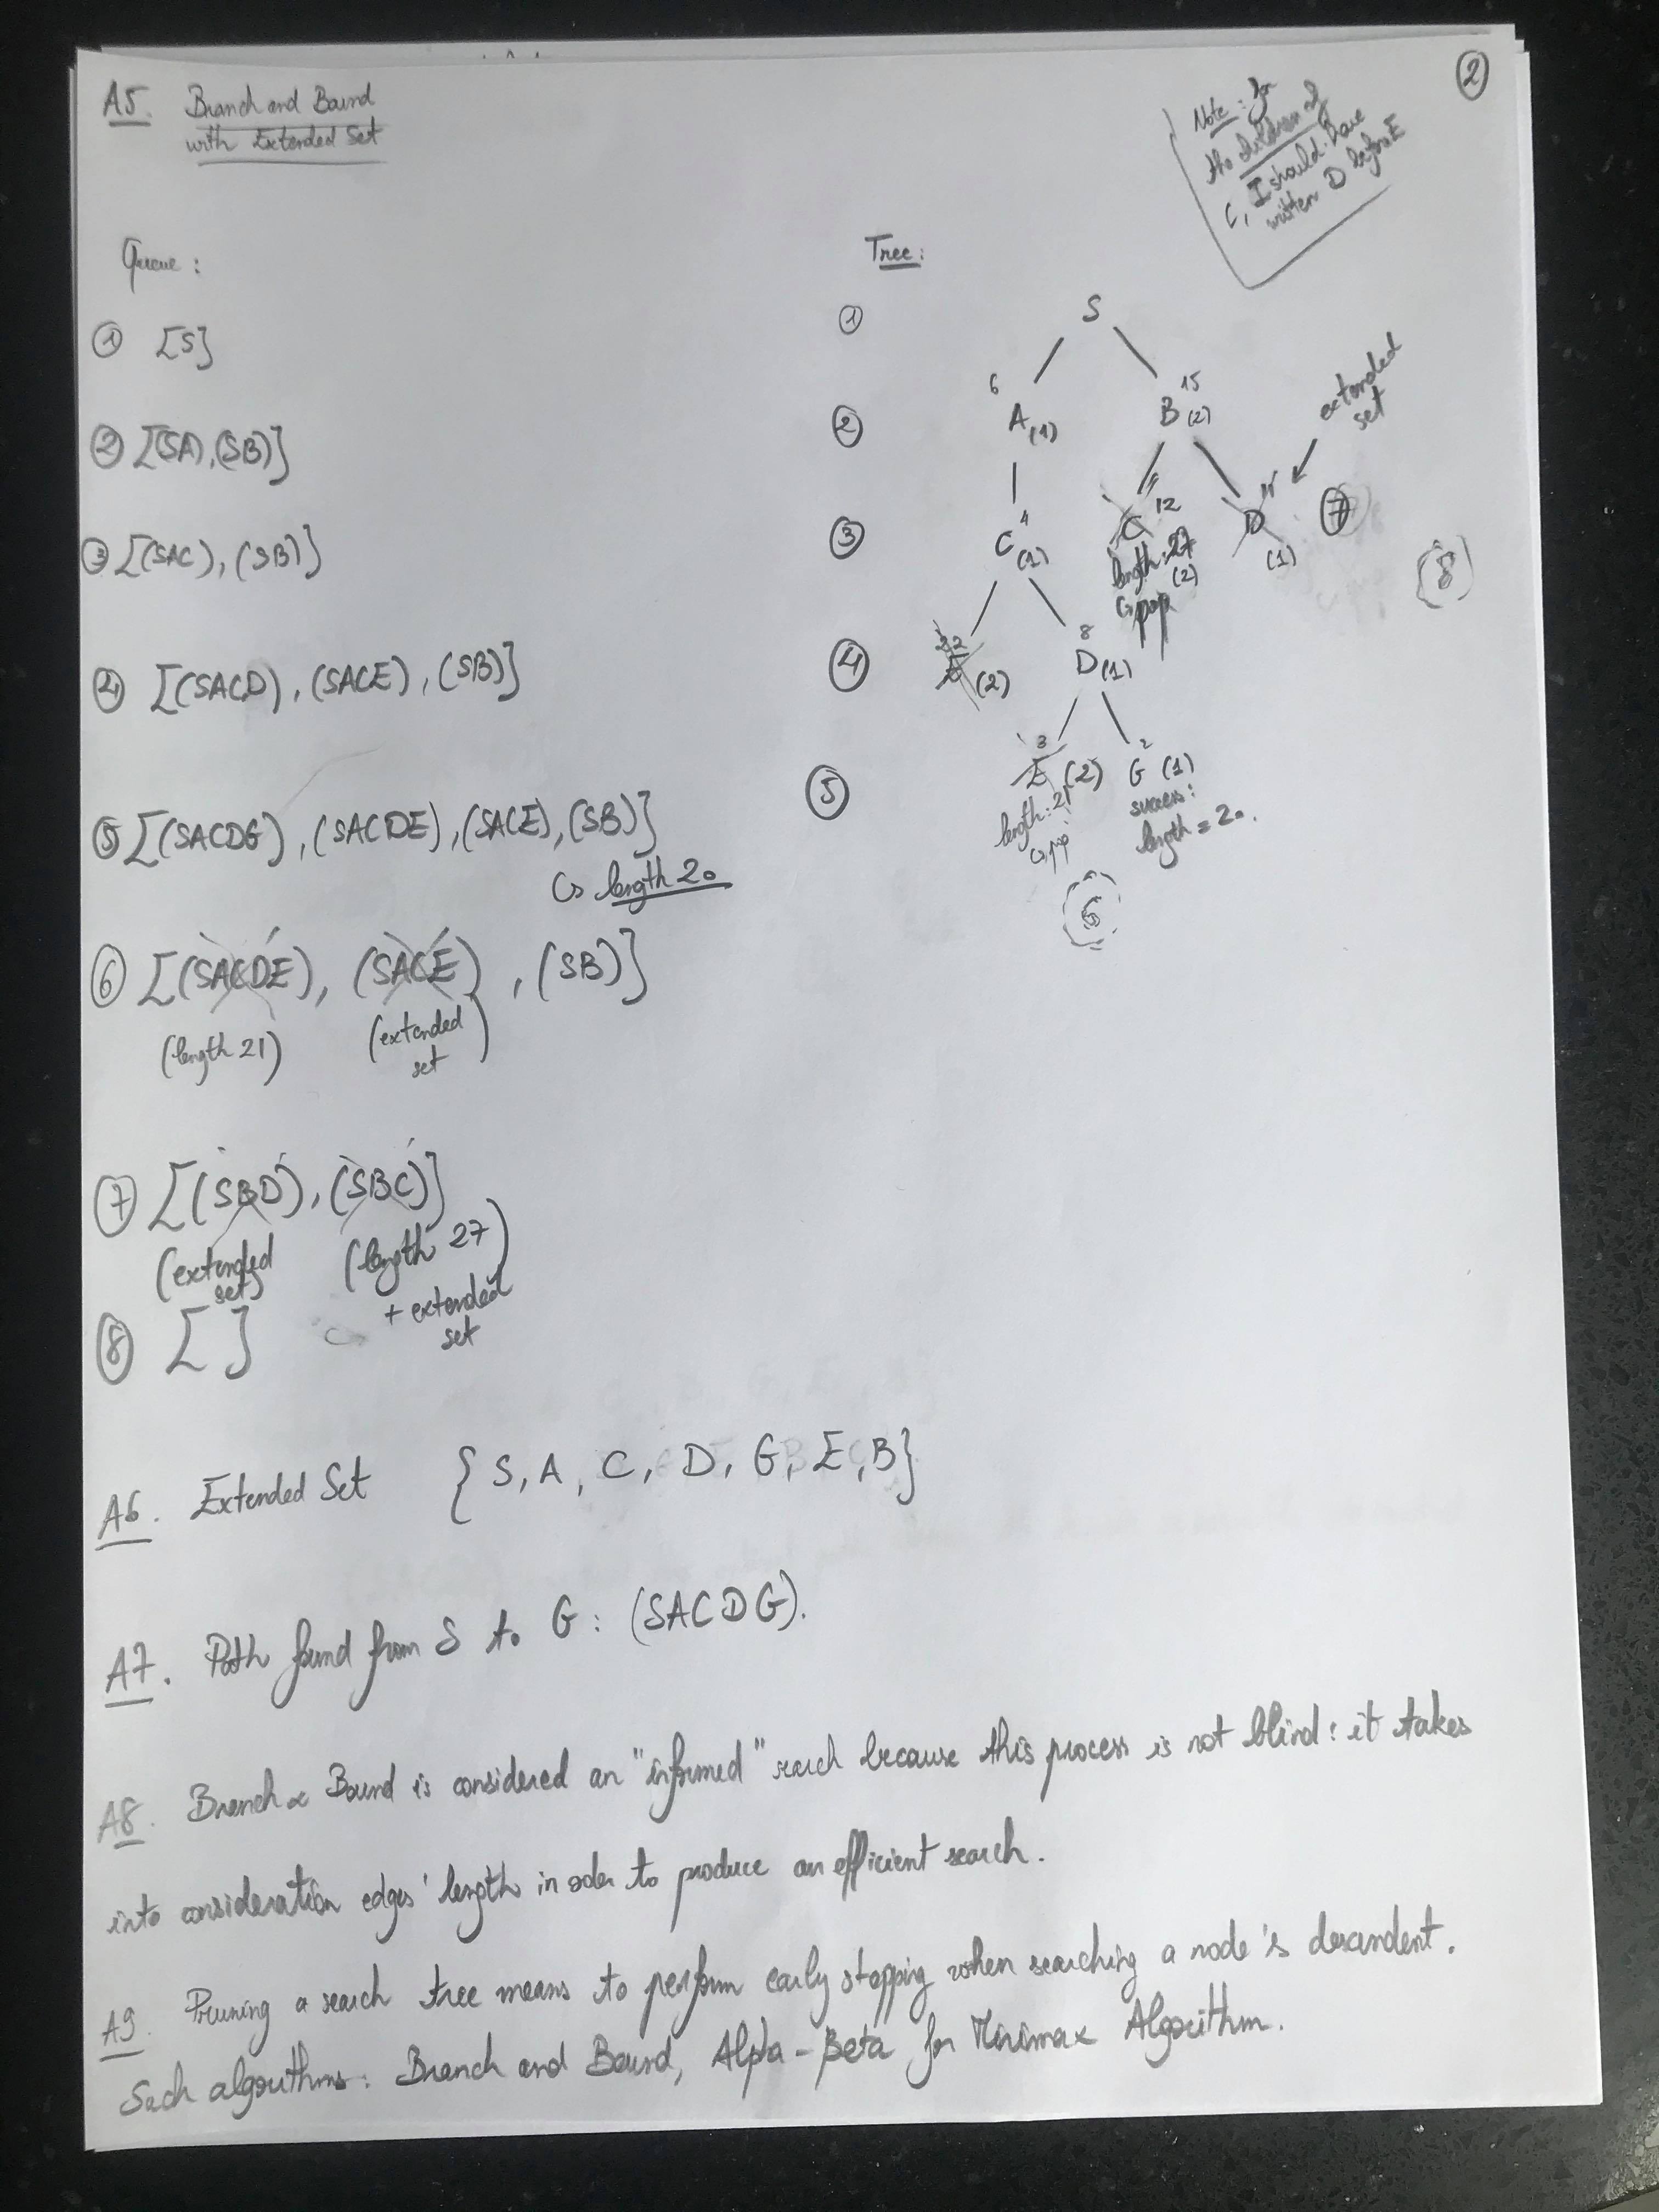 2
A5. Branch and Bound
with Extended Set
Note: for
the children of
C, I should have
written D before E
Queue:
① [S]
② [(SA),(SB)]
③ [(SAC), (SB)]
④ [(SACD), (SACE), (SB)]
⑤ [(SACDG), (SACDE), (SACE), (SB)]
↳ length 20
⑥ [(SACDE), (SACE), (SB)]
(length 21) (extended
set)
⑦ [(SBD), (SBC)]
(extended
set) (length 27)
+ extended
set
⑧ []
Tree:
① S
6 15
② A (1) B (2)
extended
set
③ 4 C (1) C 12 D ⑦
length: 27
(2) (1)
↳ pop
⑧
④ 22 E (2) 8 D (1)
⑤ 3 E (2) 2 G (1)
length: 21
↳ pop
success:
length = 20.
⑥
A6. Extended Set { S, A, C, D, G, E, B}
A7. Path found from S to G: (SACDG).
A8. Branch & Bound is considered an "informed" search because this process is not blind: it takes
into consideration edges' length in order to produce an efficient search.
A9. Pruning a search tree means to perform early stopping when searching a node's descendent.
Such algorithms: Branch and Bound, Alpha-Beta for Minimax Algorithm.